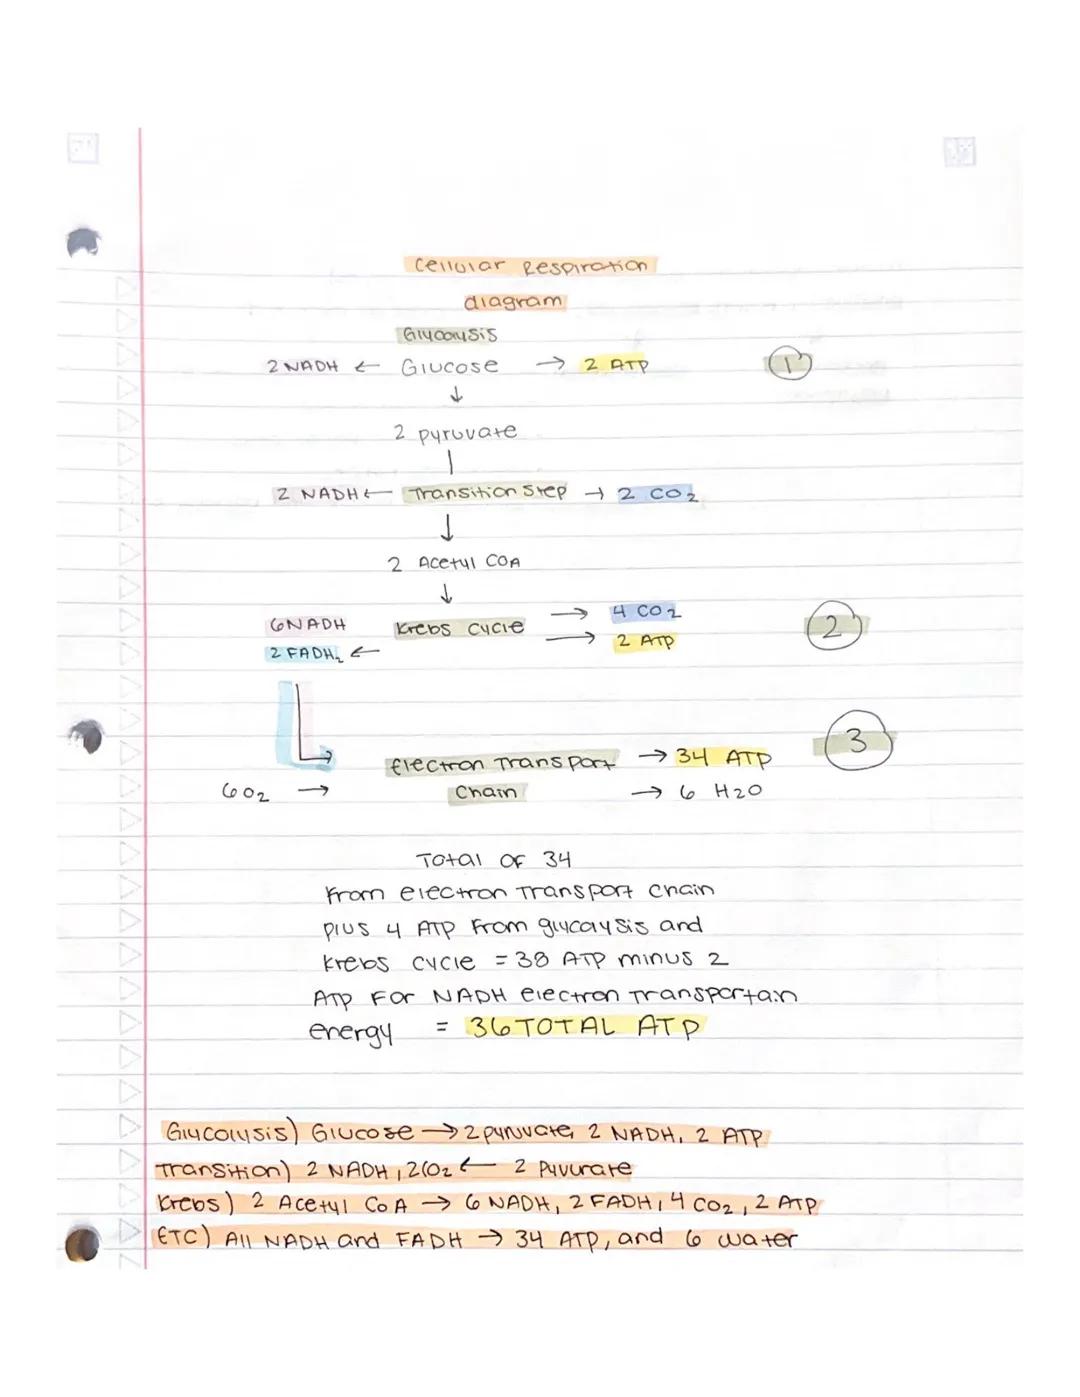 Cellular Respiration
diagram
Glycolysis
2 NADH ← Glucose → 2 ATP 1
↓
2 pyruvate
2 NADH ← Transition Step → 2 CO2
↓
2 Acetyl COA
↓
6NADH Krebs cycle → 4 CO2 2
2 FADH2 ← → 2 ATP
Electron Transport → 34 ATP 3
6O2 → Chain → 6 H2O
Total OF 34
From electron transport chain
plus 4 ATP From glycaysis and
Krebs cycle = 38 ATP minus 2
ATP For NADH electron transportain
energy = 36 TOTAL ATP
Glycolysis) Glucose → 2 pyruvate, 2 NADH, 2 ATP
Transition) 2 NADH, 2CO2 ← 2 Pyvurate
Krebs) 2 Acetyl CoA → 6 NADH, 2 FADH, 4 CO2, 2 ATP
ETC) All NADH and FADH → 34 ATP, and 6 water